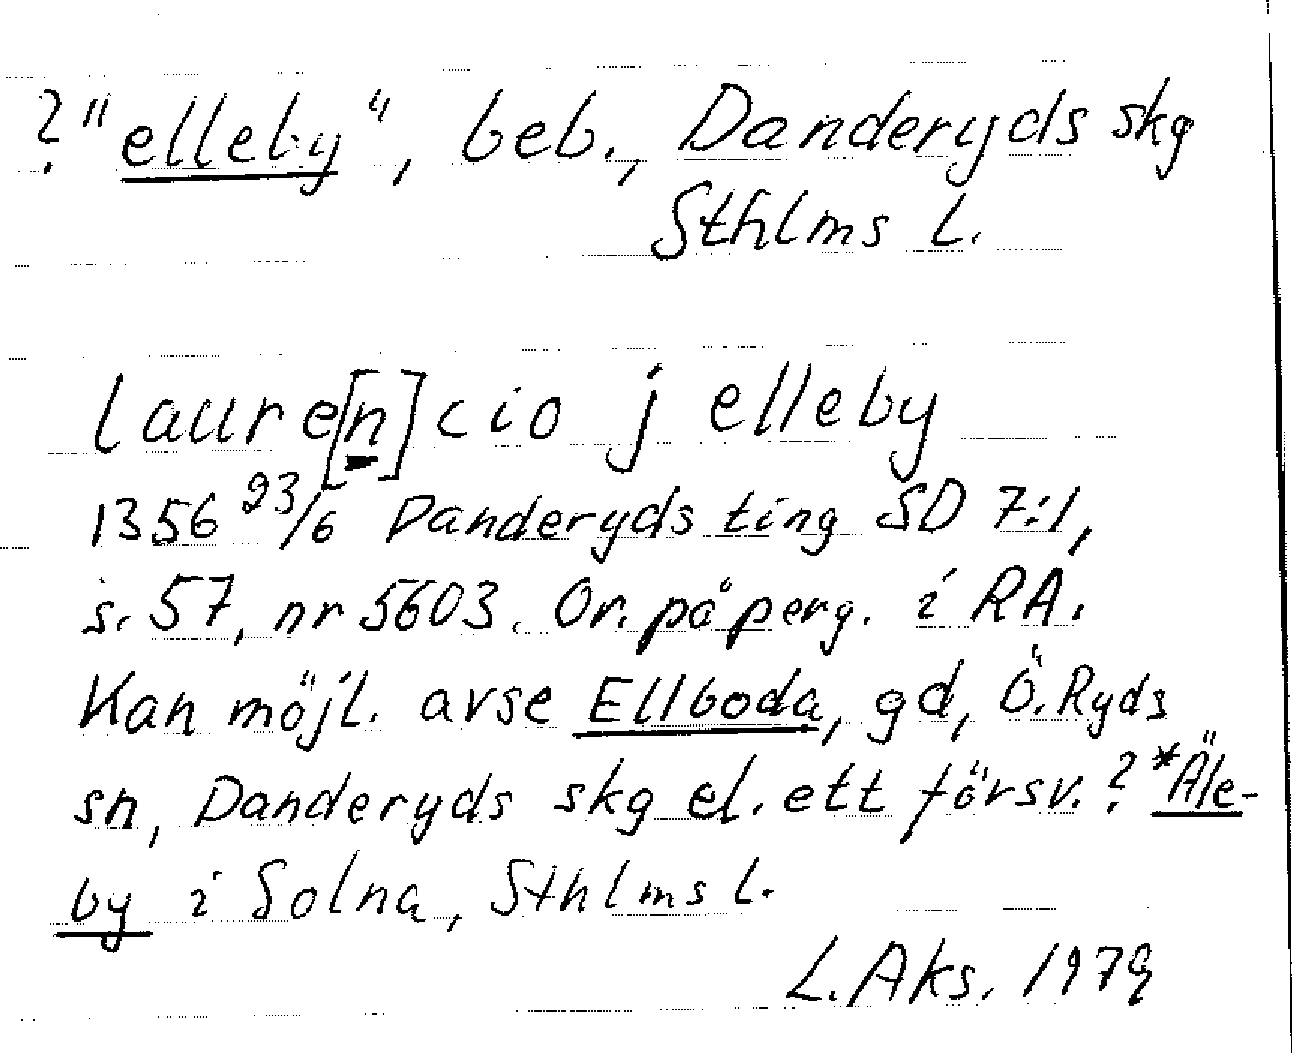 ? "elleby", beb., Danderyds skg
Sthlms l.
laure[n]cio j elleby
1356 23/6 Danderyds ting SD 7:1,
s. 57, nr 5603. Or. på perg. i RA.
Kan möjl. avse Ellboda, gd, Ö. Ryds
sn, Danderyds skg el. ett försv. ? *Äle-
by i Solna, Sthlms l.
L. Aks. 1979